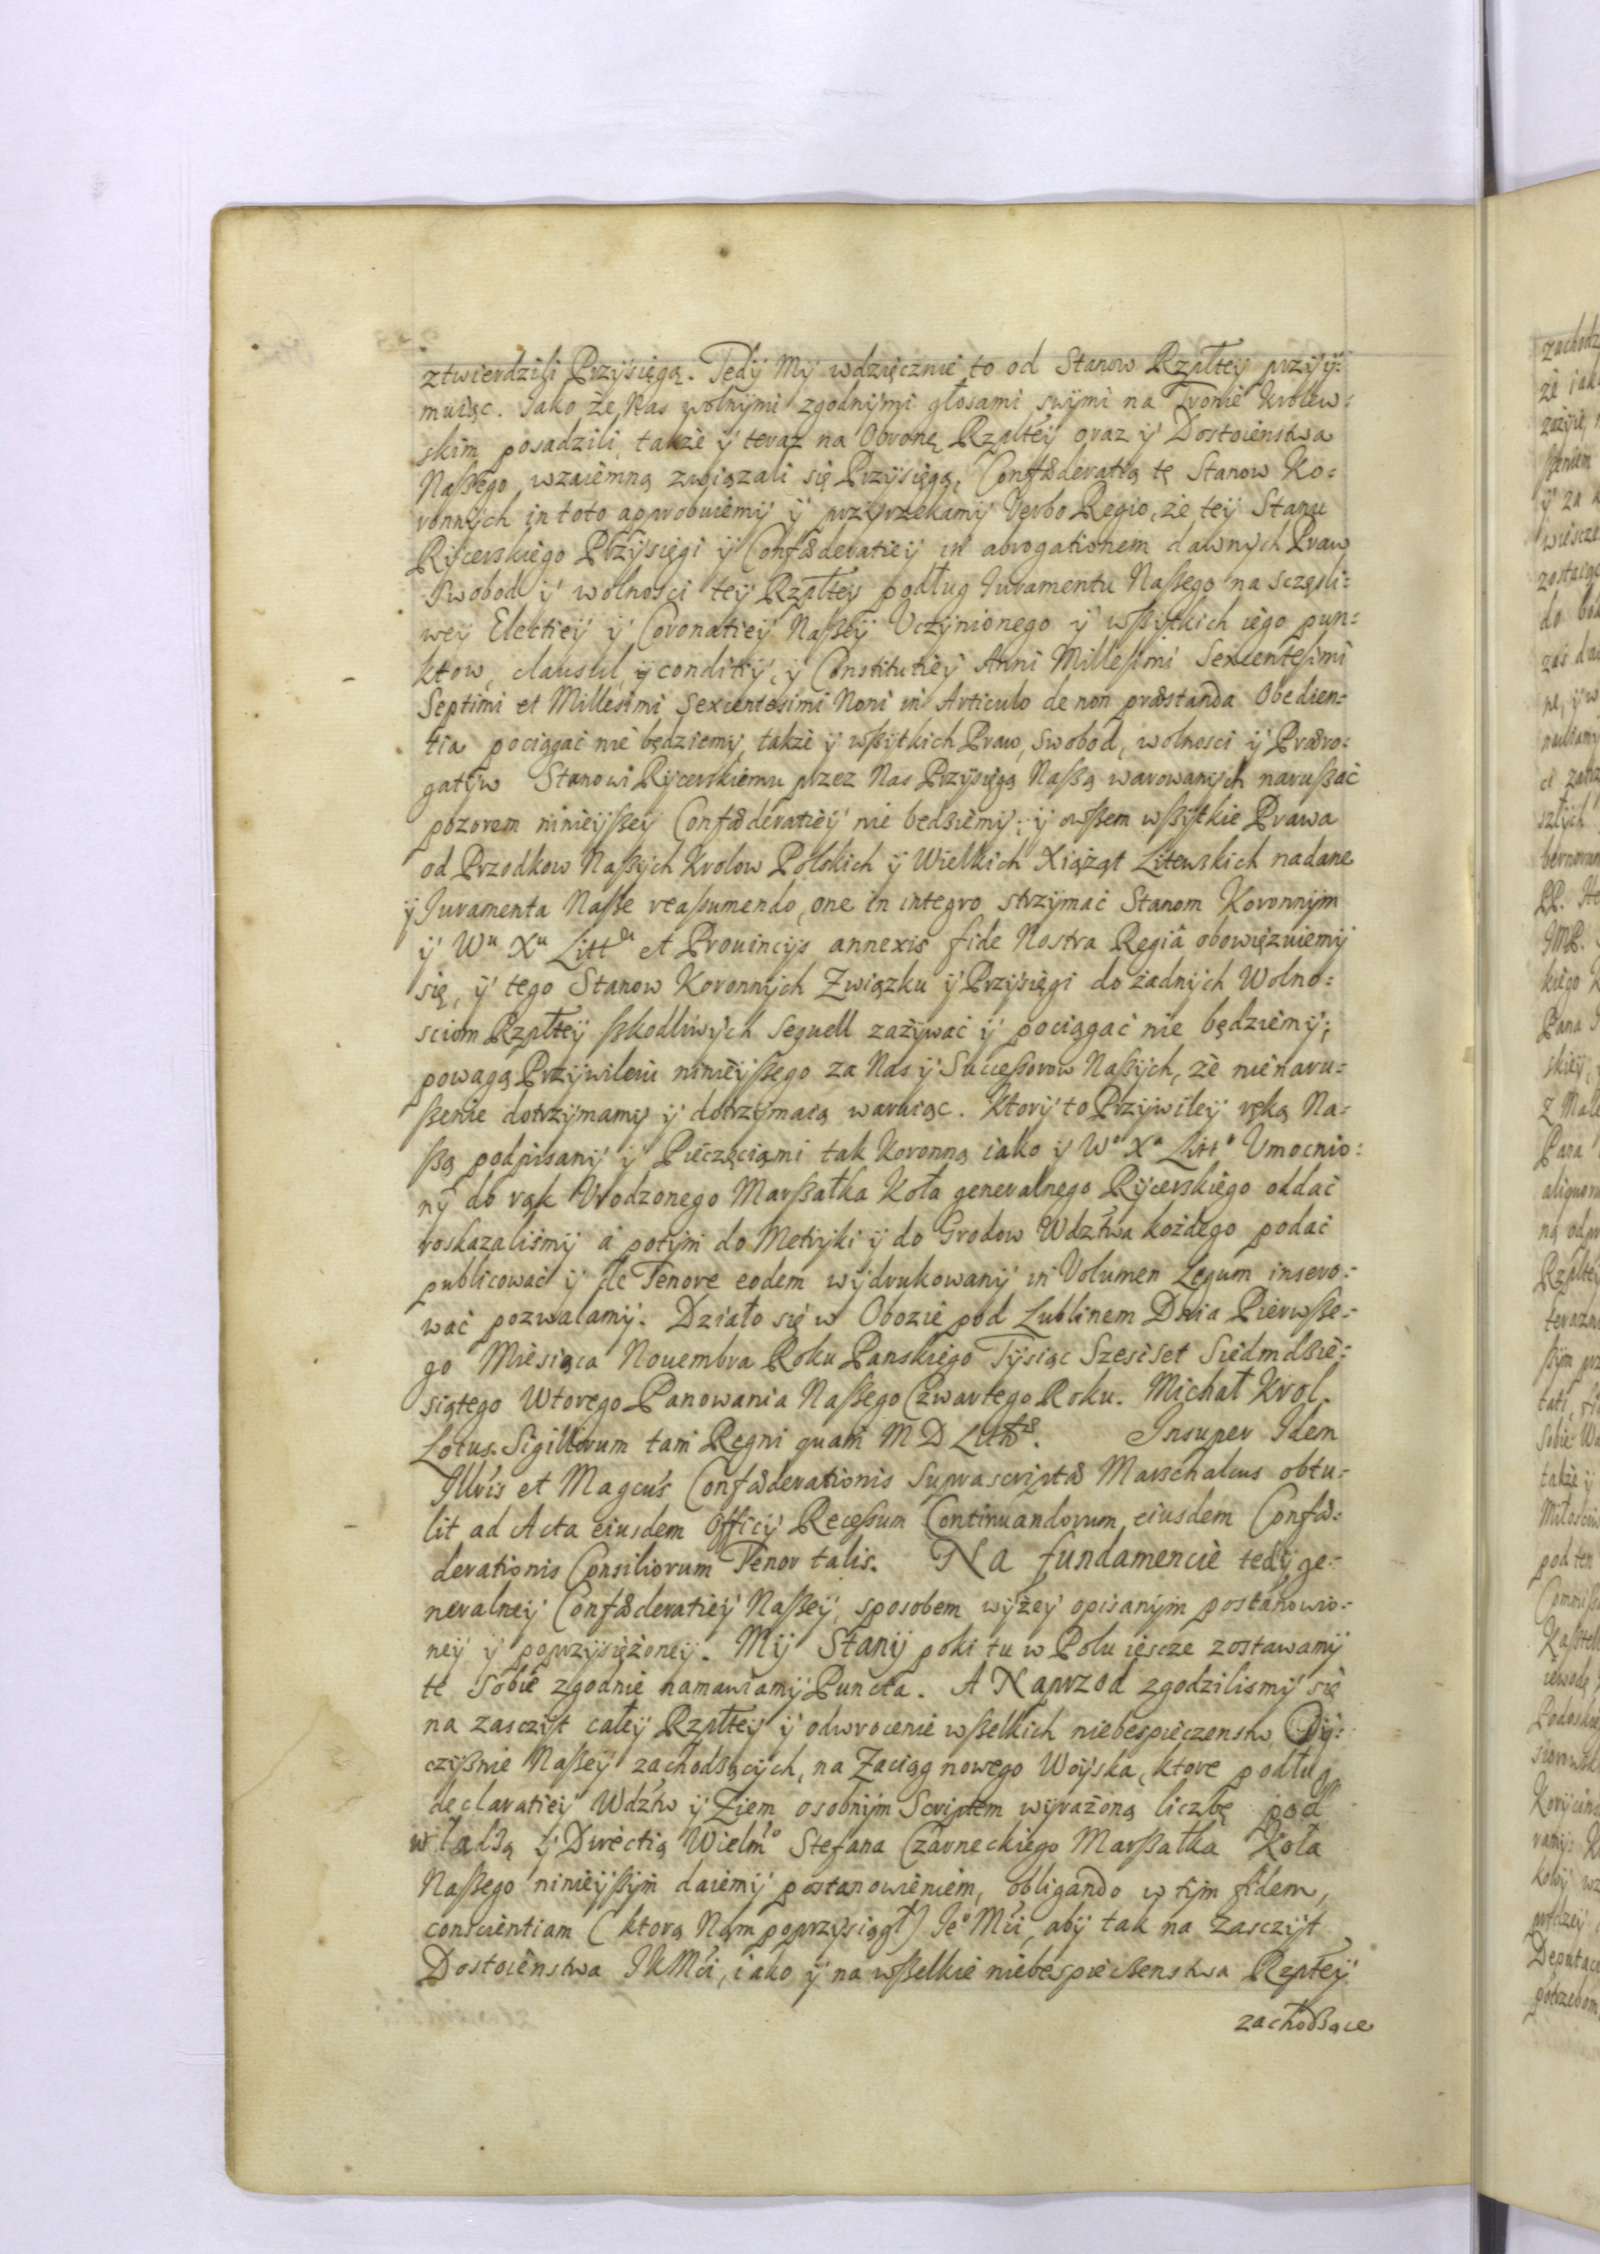 ztwierdzili Przysięgą. Tedÿ Mÿ wdzięcznie to od Stanow Rzpłteÿ przÿÿ:
muiąc. Iako że Nas wolnÿmi zgodnÿmi głosami swÿmi na Tronie Krolew:
skim posadzili, także ÿ teraz na Obronę Rzpłteÿ oraz ÿ Dostoienstwa
Naßego wzaiemną związali się Przÿsięgą, Confæderatią tę Stanow Ko:
ronnÿch in toto approbuiemÿ ÿ przÿrzekamÿ Verbo Regio, że teÿ Stanu
Rÿcerskiego Przÿsięgi ÿ Confæderatieÿ in abrogationem dawnÿch Praw
Swobod ÿ wolnosci teÿ Rzpłteÿ podług Iuramentu Naßego na sczęsli:
weÿ Electieÿ ÿ Coronatieÿ Naßeÿ Uczÿnionego ÿ wßÿtkich iego pun:
ktow, clausul, ÿ conditiÿ, ÿ Constitutieÿ Anni Millesimi Sexcentesimi
Septimi et Millesimi Sexcentesimi Noni in Articulo de non præstanda Obedien:
tia pociągać nie będziemy, także ÿ wßÿtkich Praw, Swobod, wolnosci ÿ Præro:
gatÿw Stanowi Rÿcerskiemu przez Nas Przÿsięgą Naßą warowanÿch narußać
pozorem ninieÿßeÿ Confæderatieÿ nie będziemÿ; ÿ owßem wßÿtkie Prawa
od Przodkow Naßÿch Krolow Polskich ÿ Wielkich Xiążąt Litewskich nadane
ÿ Iuramenta Naße reaßumendo, one in integro strzÿmać Stanom Koronnÿm
ÿ Wu Xu Litt et Prouincÿs annexis fide Nostra Regiâ obowięzuiemÿ
się, ÿ tego Stanow Koronnÿch Związku ÿ Przÿsięgi do żadnÿch Wolno:
sciom Rzpłteÿ ßkodliwÿch Sequell zażÿwać ÿ pociągać nie będziemÿ;
powagą Przÿwileiu ninieÿßego za Nas ÿ Succeßorow Naßÿch, że nienaru:
ßenie dotrzÿmamy ÿ dotrzÿmaią waruiąc. Ktorÿ to Przÿwileÿ ręką Na:
ßą podpisanÿ ÿ Pieczęciami tak Koronną iako ÿ Wo Xa Litto Umocnio:
nÿ do rąk Urodzonego Marßałka Koła generalnego Rÿcerskiego oddać
roskazaliśmÿ á potÿm do Metrÿki ÿ do Grodow Wdztwa kożdego podać
publicować ÿ de Tenore eodem wÿdrukowanÿ in Volumen Legum insero:
wać pozwalamÿ. Działo się w Obozie pod Lublinem Dnia Pierwße:
go Miesiąca Nouembra Roku Panskiego Tÿsiąc Szesćset Siedmdzie:
siątego Wtorego Panowania Naßego Czwartego Roku. Michał Krol.
Lotus Sigillorum tam Regni quam M D Litt. Insuper Idem
Illris et Magcus Confæderationis Suprascriptæ Marschalcus obtu:
lit ad Acta eiusdem Officÿ Receßum Continuandorum eiusdem Confæ:
derationis Consiliorum Tenor talis. Na fundamencie tedÿ ge:
neralneÿ Confæderatieÿ Naßeÿ, sposobem wÿżeÿ opisanÿm postanowio:
neÿ ÿ poprzÿsiężoneÿ. Mÿ Stanÿ poki tu w Polu iescze zostawamÿ
te sobie zgodnie namawiamÿ Puncta. A Naprzod zgodzilismÿ się
na zasczÿt całeÿ Rzpłteÿ ÿ odwrocenie wßelkich niebespieczenstw Oÿ:
czÿßnie Naßeÿ zachodzącÿch, na Zaciąg nowego Woÿska, ktore podług
declaratieÿ Wdztw ÿ Ziem osobnÿm Scriptem wÿrażoną liczbę pod
władzą ÿ Directią Wielmo Stefana Czarneckiego Marßałka Koła
Naßego ninieÿßÿm daiemÿ postanowieniem, obligando w tÿm fidem,
conscientiam (ktorą Nam poprzÿsiągł) Ieo Mći, abÿ tak na zasczÿt
Dostoienstwa IKMći, iako ÿ na wßelkie niebespieczenstwa Rzpłteÿ
zachodzące